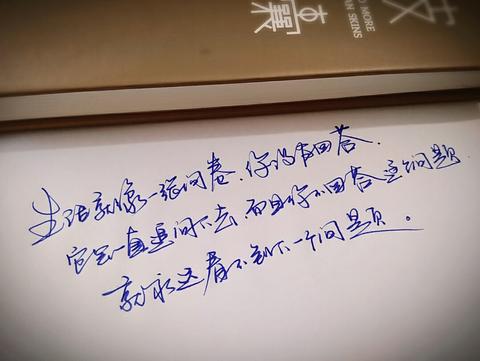 MORE
SKINS
生活就像一张问卷,你没有回答,
它会一直追问下去,而且你不回答这个问题,
就永远看不到下一个问题。